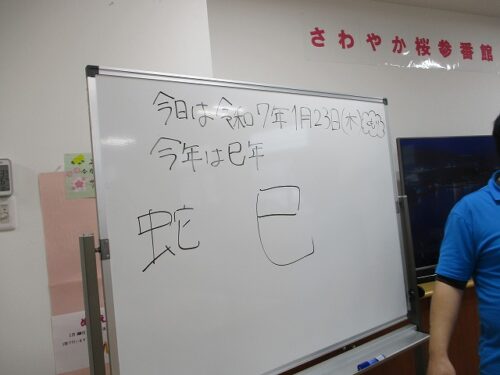 さわやか桜参番館
今日は令和7年1月23日(木)
今年は巳年
蛇 巳